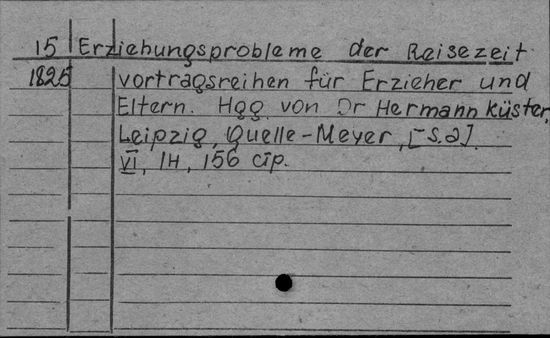 15 Erziehungsprobleme der Reisezeit
1825 vortragsreihen für Erzieher und
Eltern. Hgg. von Dr Hermann Küster,
Leipzig, Quelle-Meyer, [S.a].
VI, 1H, 156 cтр.